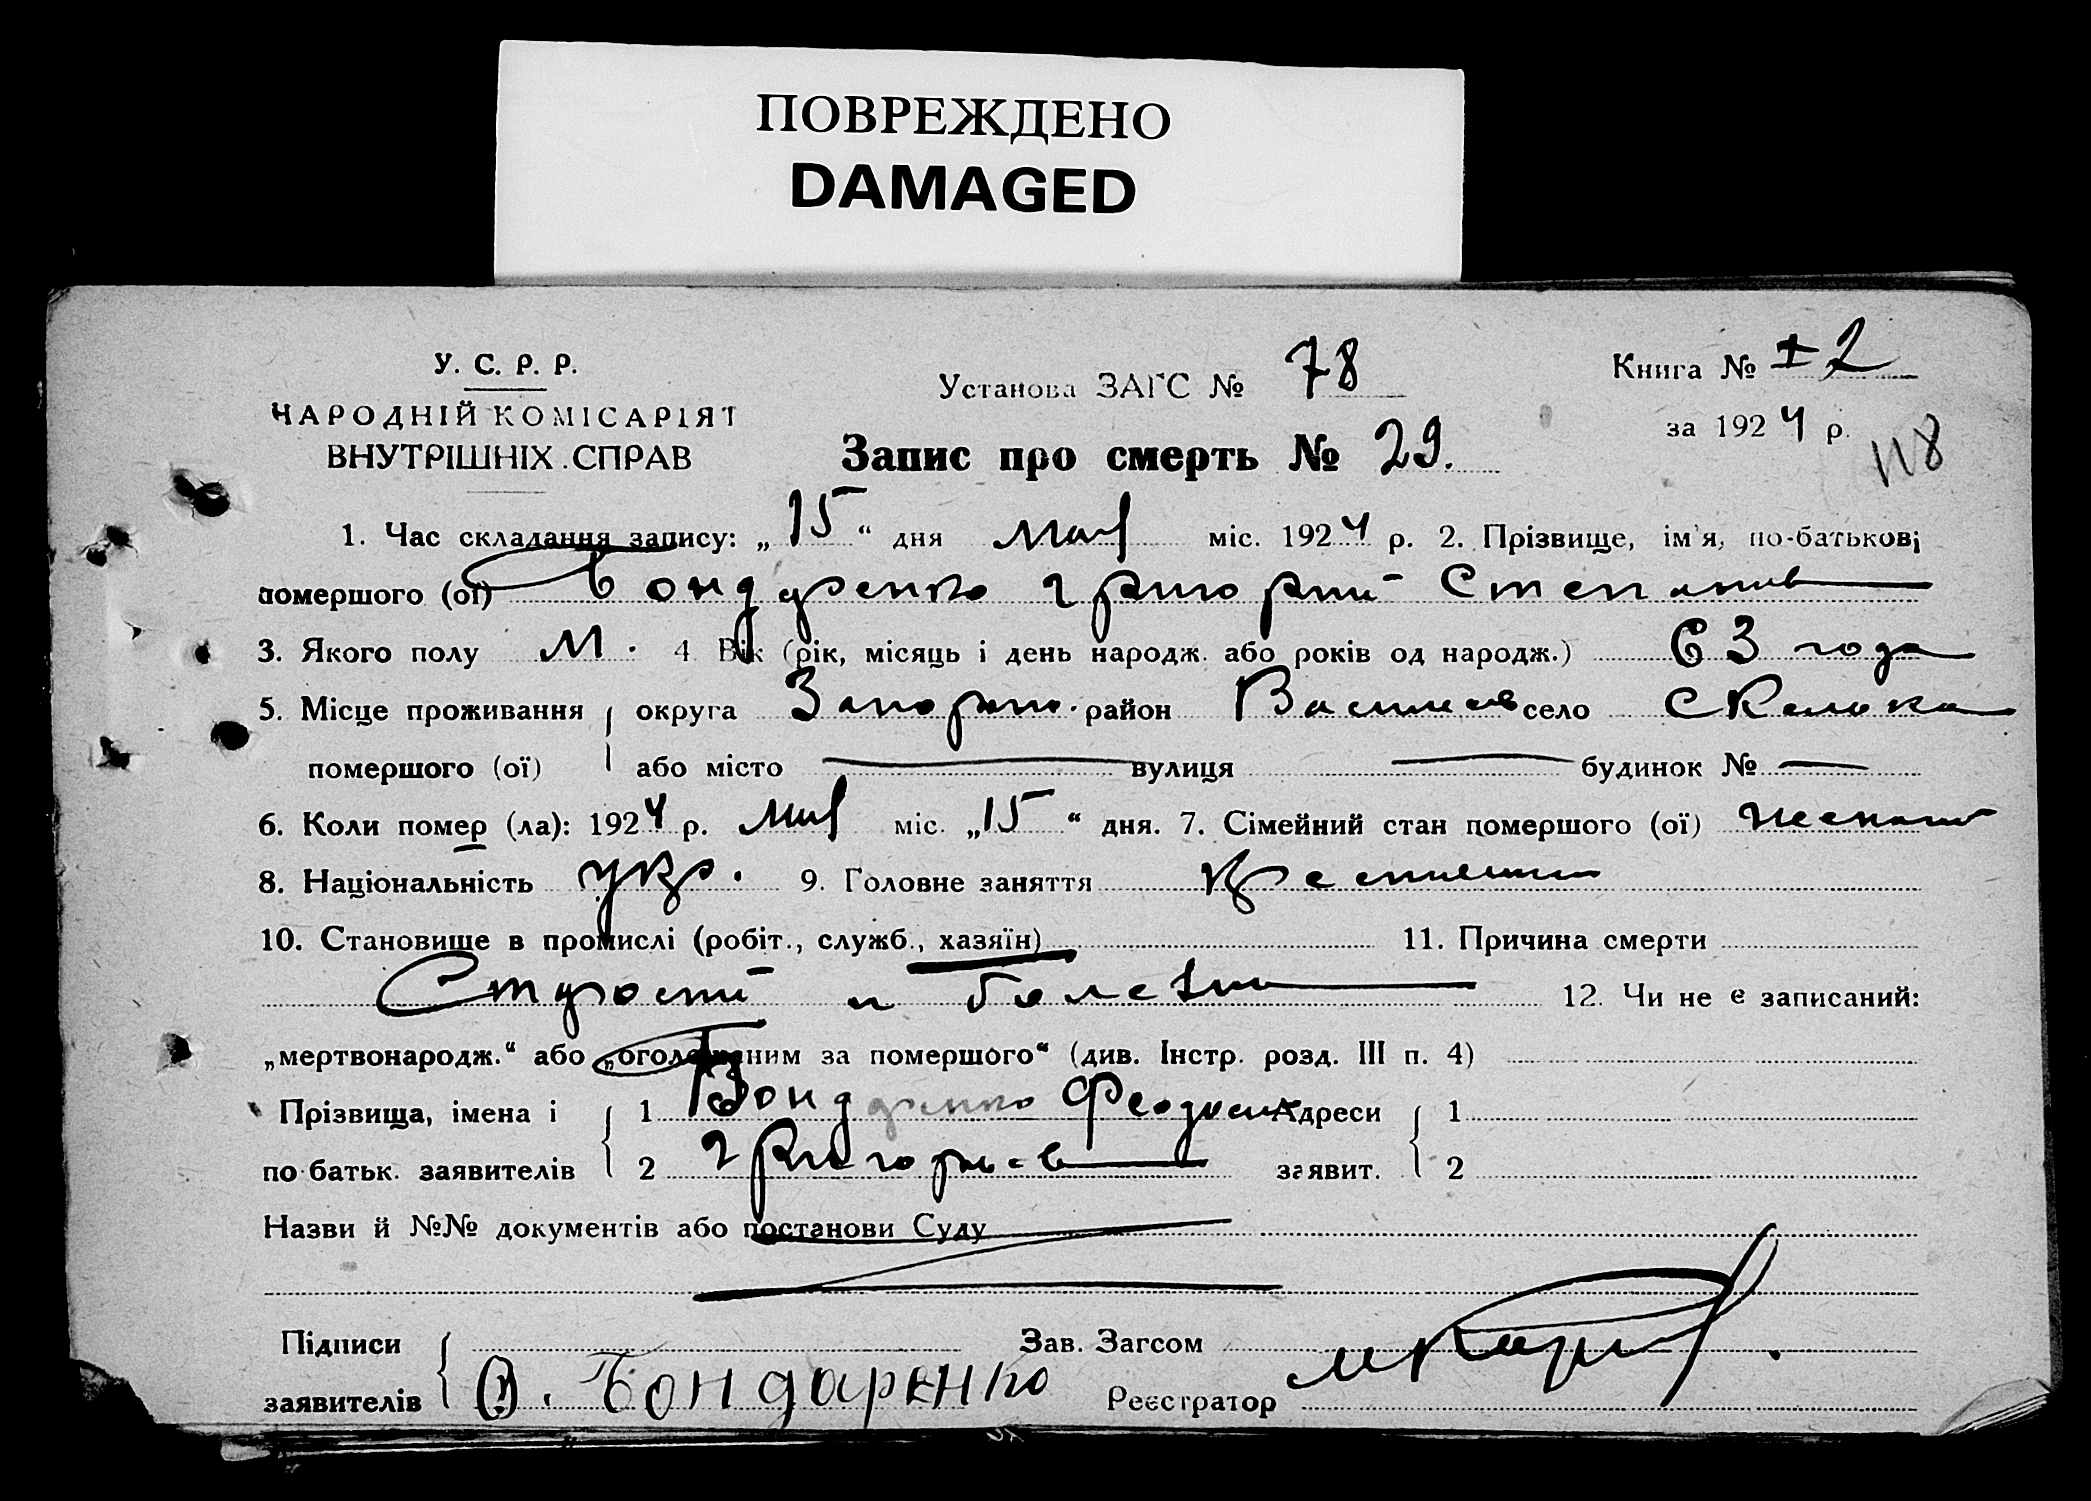 ПОВРЕЖДЕНО
DAMAGED
У. С. Р. Р.
НАРОДНІЙ КОМІСАРІЯТ
ВНУТРІШНІХ СПРАВ
Установа ЗАГС № 78
Книга № 12
за 1924 р.
118
Запис про смерть № 29.
1. Час складання запису: „15“ дня мая міс. 1924 р. 2. Прізвище, ім'я, по-батькові
помершого (ої) Бондаренко Григорий Степанов
3. Якого полу М. 4 Вік (рік, місяць і день народж. або років од народж.) 63 года
5. Місце проживання округа Запорож. район Васильев село Скелька
помершого (ої) або місто вулиця будинок №
6. Коли помер (ла): 1924 р. мая міс. „15“ дня. 7. Сімейний стан помершого (ої) женат
8. Національність укр. 9. Головне заняття
10. Становище в промислі (робіт., служб., хазяїн) 11. Причина смерти
Старости и болезни 12. Чи не є записаний:
„мертвонародж.“ або „оголошеним за помершого“ (див. Інстр. розд. III п. 4)
Прізвища, імена і 1 Бондаренко Феодосий Адреси 1
по батьк. заявителів 2 Григорьев заявит. 2
Назви й №№ документів або постанови Суду
Підписи Зав. Загсом
заявителів Ф. Бондаренко Реєстратор